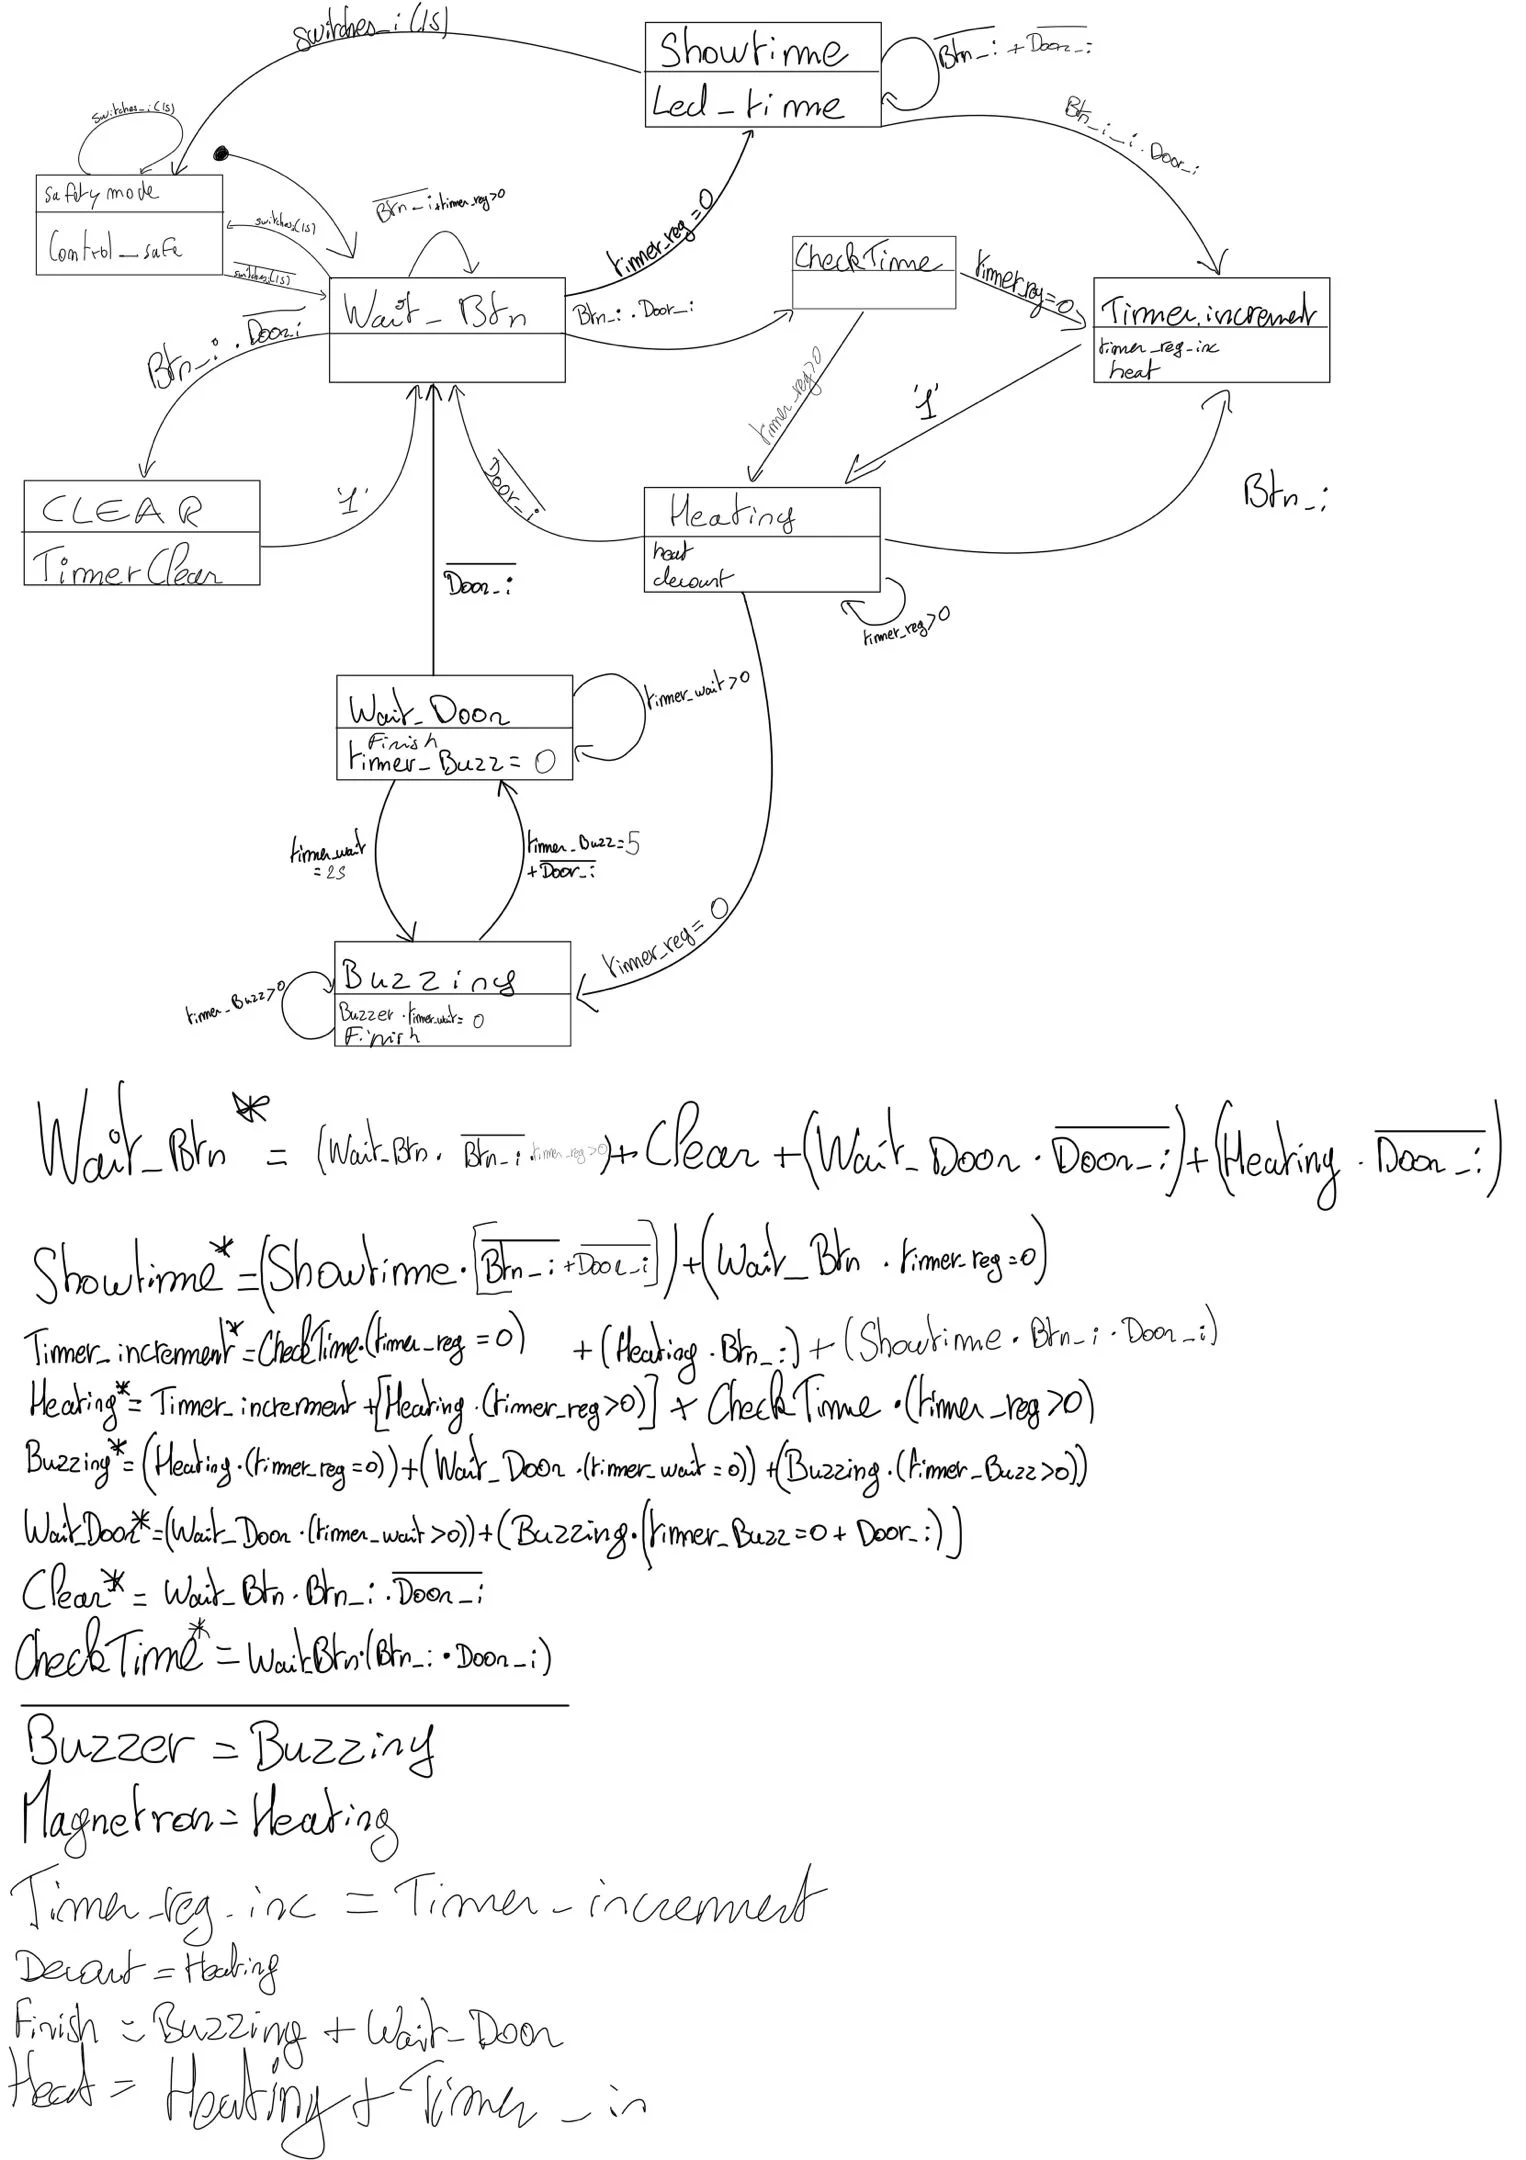 switches_i(15)
Showtime
Led_time
B̅t̅n̅_̅i̅ + D̅o̅o̅r̅_̅i̅
Btn_i_i.Door_i
switches_i(15)
safety mode
Control_safe
switches(15)
s̅w̅i̅t̅c̅h̅e̅s̅(̅1̅5̅)̅
B̅t̅n̅_̅i̅+timer_reg>0
timer_reg=0
Wait_Btn
Btn_i.Door_i
CheckTime
timer_reg=0
Timer_increment
timer_reg_inc
heat
Btn_i.D̅o̅o̅r̅_̅i̅
timer_reg>0
'1'
CLEAR
TimerClear
'1'
D̅o̅o̅r̅_̅i̅
Heating
heat
decount
Btn_i
timer_reg>0
D̅o̅o̅r̅_̅i̅
Wait_Door
Finish
timer_Buzz= 0
timer_wait>0
timer_wait
=2s
timer_Buzz=5
+D̅o̅o̅r̅_̅i̅
timer_reg= 0
Buzzing
Buzzer .timer_wait= 0
Finish
timer_Buzz>0
Wait_Btn* = (Wait_Btn. B̅t̅n̅_̅i̅.timer_reg>0)+Clear+(Wait_Door.D̅o̅o̅r̅_̅i̅)+(Heating.D̅o̅o̅r̅_̅i̅)
Showtime*=(Showtime.[B̅t̅n̅_̅i̅+D̅o̅o̅r̅_̅i̅])+(Wait_Btn.timer_reg=0)
Timer_increment*=CheckTime.(timer_reg=0) +(Heating.Btn_i)+(Showtime.Btn_i.Door_i)
Heating*= Timer_increment+[Heating.(timer_reg>0)] + CheckTime.(timer_reg>0)
Buzzing*=(Heating.(timer_reg=0))+(Wait_Door.(timer_wait=0))+(Buzzing.(timer_Buzz>0))
Wait_Door*=(Wait_Door.(timer_wait>0))+(Buzzing.(timer_Buzz=0+Door_i))
Clear*= Wait_Btn.Btn_i.D̅o̅o̅r̅_̅i̅
CheckTime*=WaitBtn.(Btn_i.Door_i)
Buzzer = Buzzing
Magnetron=Heating
Timer_reg_inc = Timer_increment
Decount = Heating
Finish = Buzzing + Wait_Door
Heat = Heating + Timer_in